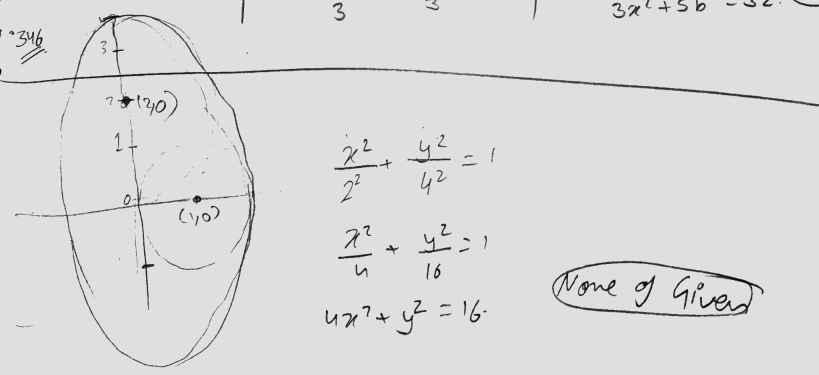 3 3 3x² + 5b = 32.
·346
3
2 (2,0)
1
0
(1,0)
x²/2² + y²/4² = 1
x²/4 + y²/16 = 1
4x² + y² = 16.
None of Given